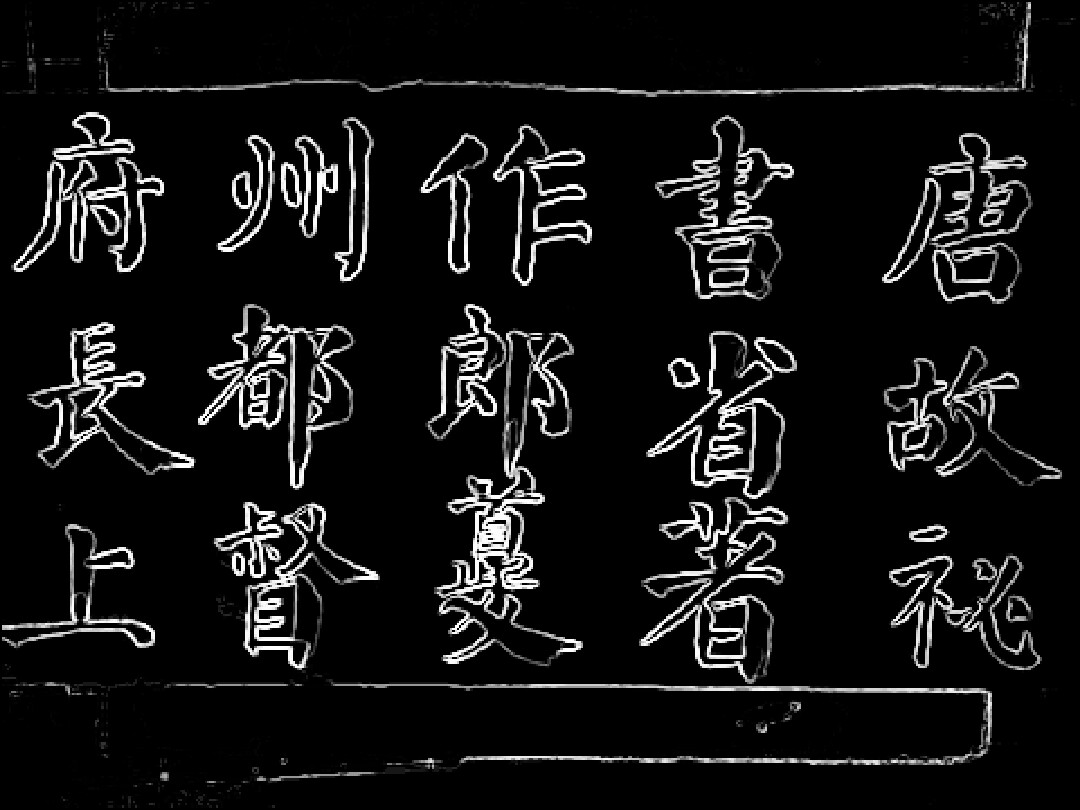 唐故祕
書省著
作郎夔
州都督
府長上